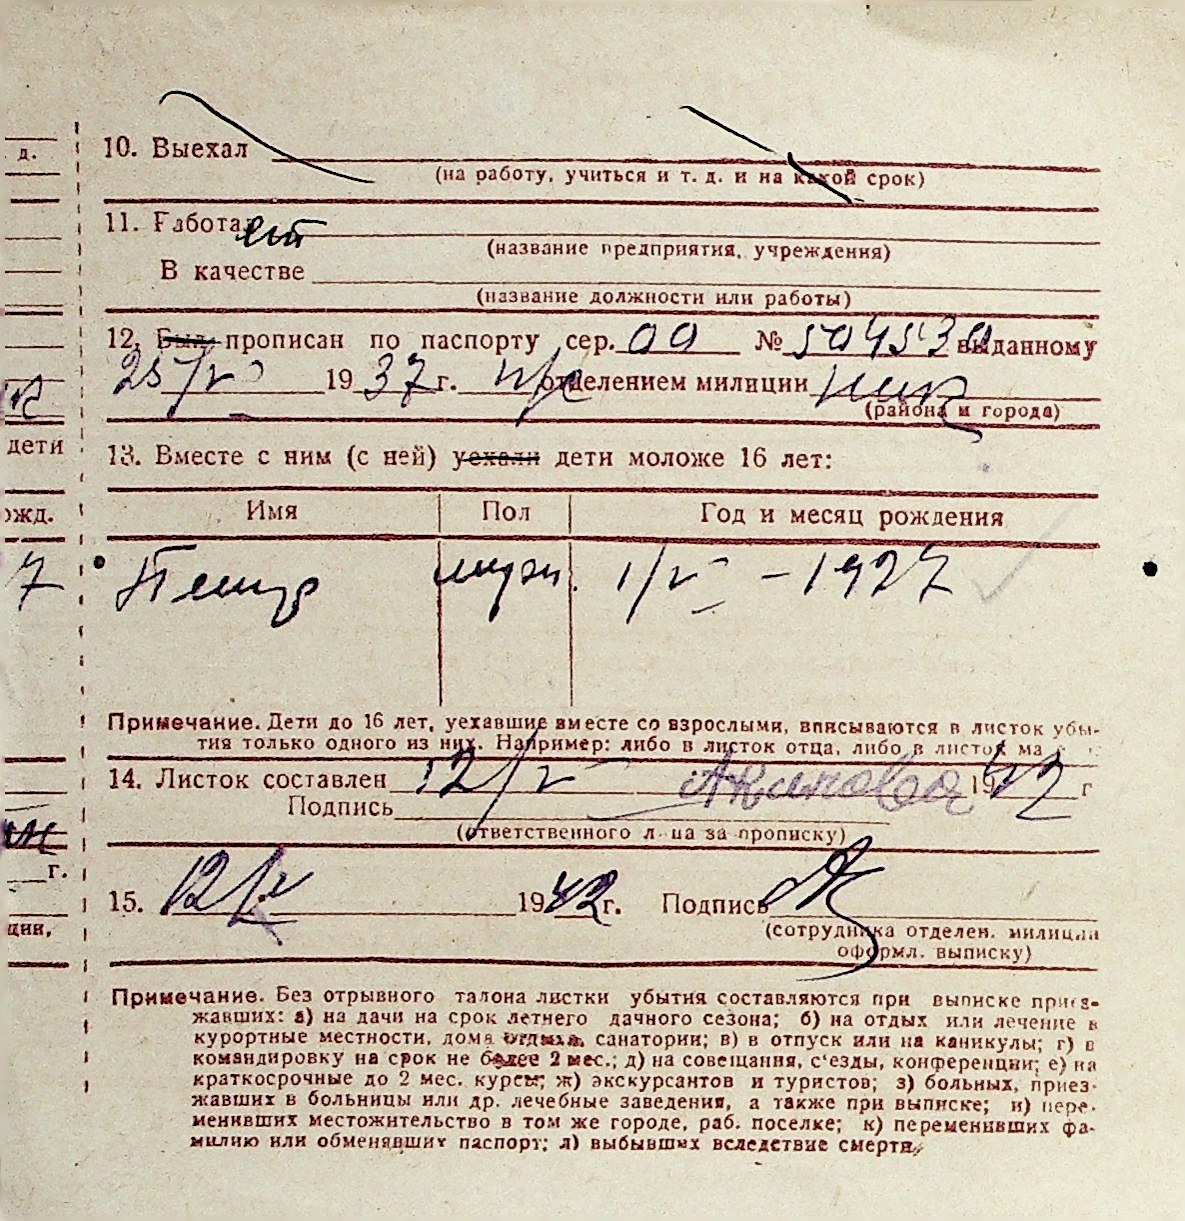 д.
10. Выехал
(на работу, учиться и т. д. и на какой срок)
11. Работает
(название предприятия, учреждения)
В качестве
(название должности или работы)
12. Был прописан по паспорту сер. № выданному
25/V 1937 г. отделением милиции
(района и города)
дети
13. Вместе с ним (с ней) уехали дети моложе 16 лет:
ожд.
Имя Пол Год и месяц рождения
7
Петр муж. 1/V – 1927
Примечание. Дети до 16 лет, уехавшие вместе со взрослыми, вписываются в листок убы-
тия только одного из них. Например: либо в листок отца, либо в листок ма
14. Листок составлен 12/V 1942 г
Подпись
(ответственного лица за прописку)
г.
15. 12/V 1942 г. Подпись
ции,
(сотрудника отделен. милиции
оформл. выписку)
Примечание. Без отрывного талона листки убытия составляются при выписке приез-
жавших: а) на дачи на срок летнего дачного сезона; б) на отдых или лечение в
курортные местности, дома отдыха, санатории; в) в отпуск или на каникулы; г) в
командировку на срок не более 2 мес.; д) на совещания, с'езды, конференции; е) на
краткосрочные до 2 мес. курсы; ж) экскурсантов и туристов; з) больных, приез-
жавших в больницы или др. лечебные заведения, а также при выписке; и) пере-
менивших местожительство в том же городе, раб. поселке; к) переменивших фа-
милию или обменявших паспорт; л) выбывших вследствие смерти.